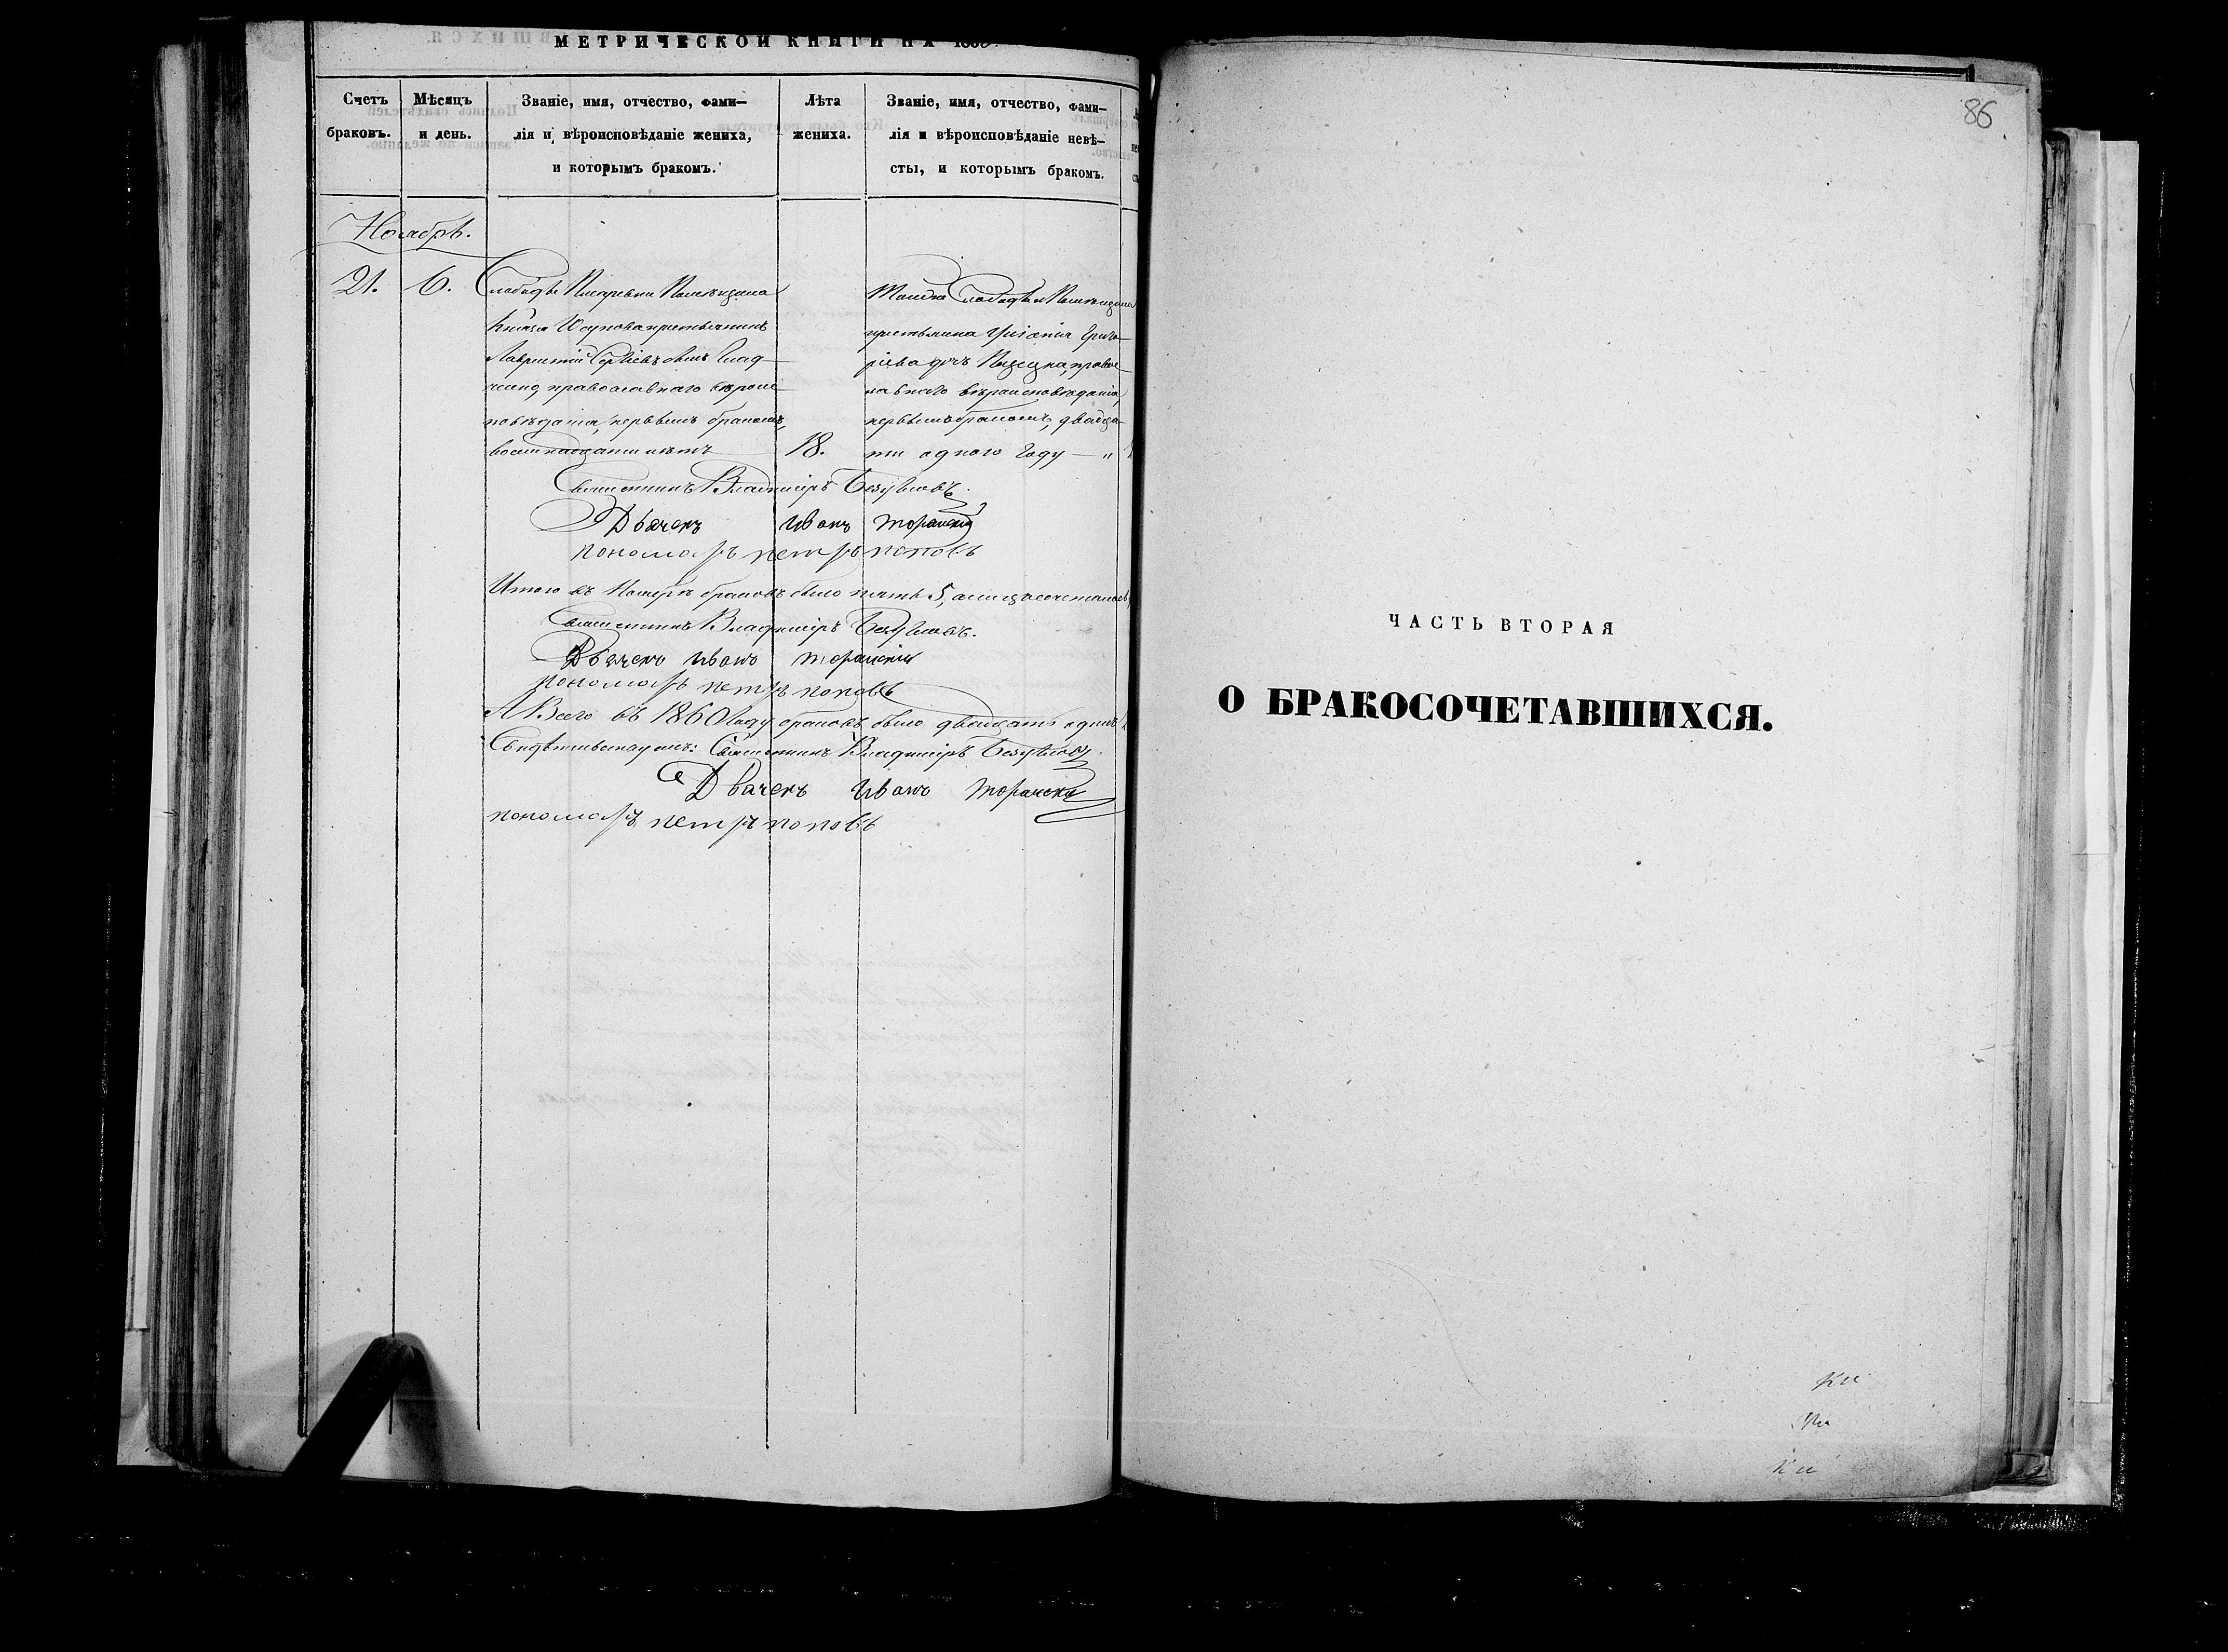 МЕТРИЧЕСКОЙ КНИГИ НА 1860
Счетъ браковъ.
Мѣсяцъ и день.
Званіе, имя, отчество, фами-
лія и вѣроисповѣданіе жениха,
и которымъ бракомъ.
Лѣта жениха.
Званіе, имя, отчество, фами-
лія и вѣроисповѣданіе невѣ-
сты, и которымъ бракомъ.
Ноябрь.
21. 6.
Слободы Писаревки Помѣщика
Князя Юсупова крестьянинъ
Лаврентій Сергіевъ сынъ
православнаго вѣроис-
повѣданія, первымъ бракомъ,
восемнадцати лѣтъ
18.
Тойже Слободы и Помѣщика
крестьянина Григо-
ріева дочь православ-
наго вѣроисповѣданія,
первымъ бракомъ, двадца-
ти одного году — "
Священникъ Владиміръ
Дьячекъ Иванъ Торанскій
пономарь петръ поповъ
Итого въ Ноябрѣ браковъ было пять 5,
Священникъ Владиміръ
Дьячекъ Иванъ Торанскій
пономарь петръ поповъ
А Всего въ 1860 Году браковъ было двадцать одинъ
Свидѣтельствуемъ: Священникъ Владиміръ
Дьячекъ Иванъ Торанскій
пономарь петръ поповъ
86
ЧАСТЬ ВТОРАЯ
О БРАКОСОЧЕТАВШИХСЯ.